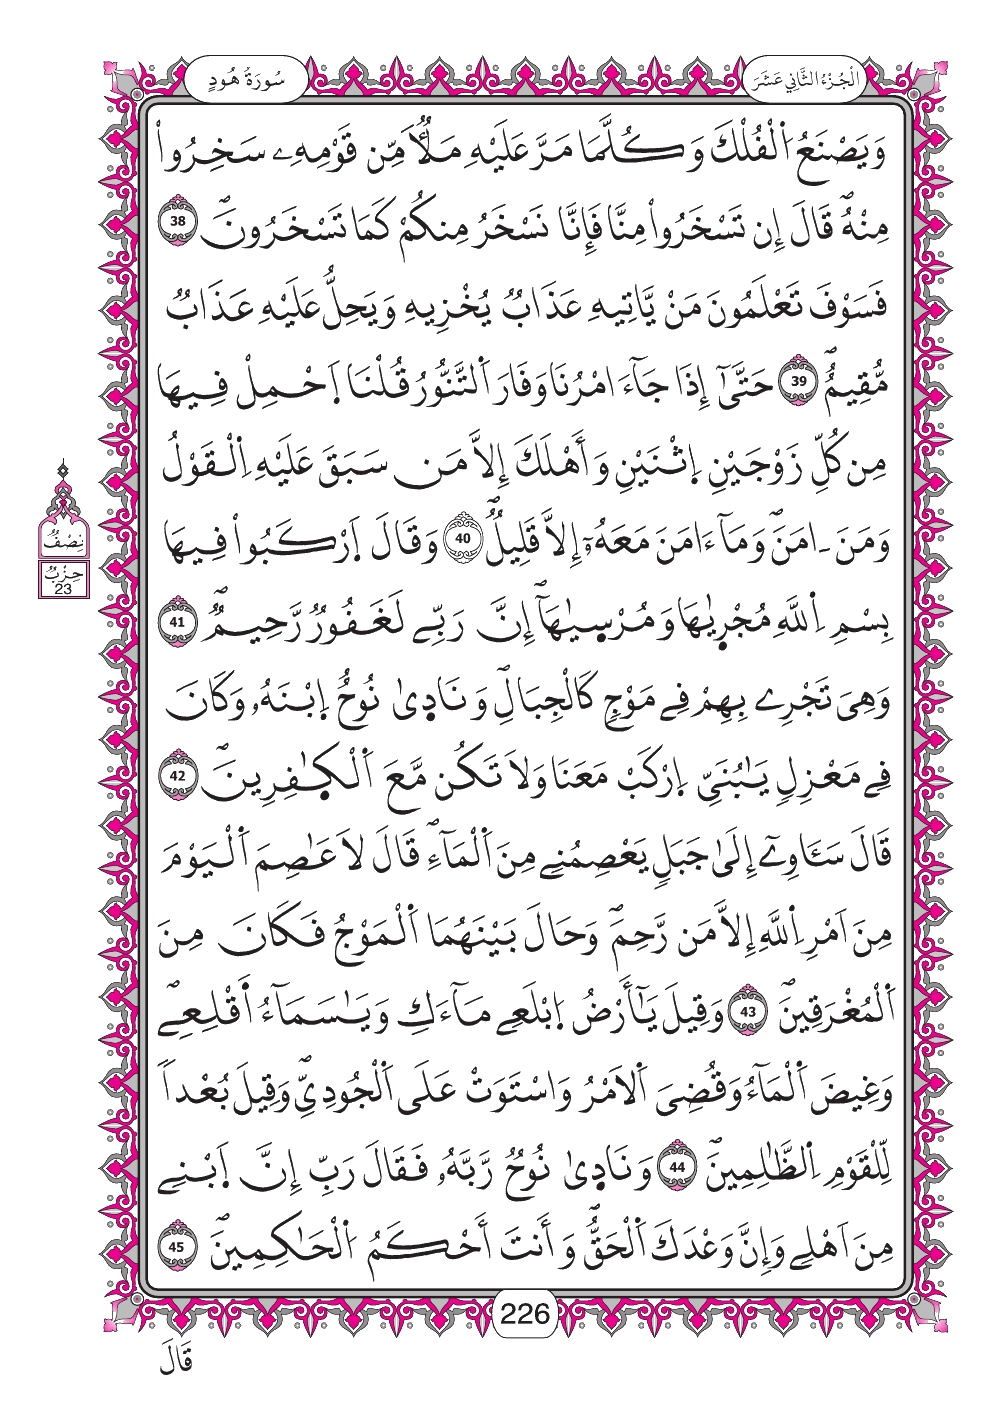 سُورَةُ هُودٍ
الْجُزْءُ الثَّانِي عَشَرَ
وَيَصْنَعُ اُ۬لْفُلْكَ وَكُلَّمَا مَرَّ عَلَيْهِ مَلَأٞ مِّن قَوْمِهِۦ سَخِرُواْ
مِنْهُۖ قَالَ إِن تَسْخَرُواْ مِنَّا فَإِنَّا نَسْخَرُ مِنكُمْ كَمَا تَسْخَرُونَۖ 38
فَسَوْفَ تَعْلَمُونَ مَنْ يَّاتِيهِ عَذَابٞ يُخْزِيهِ وَيَحِلُّ عَلَيْهِ عَذَابٞ
مُّقِيمٌۖ 39 حَتَّىٰٓ إِذَا جَآءَ امْرُنَا وَفَارَ اَ۬لتَّنُّورُ قُلْنَا اَ۪حْمِلْ فِيهَا
مِن كُلِّ زَوْجَيْنِ اِ۪ثْنَيْنِ وَأَهْلَكَ إِلَّا مَن سَبَقَ عَلَيْهِ اِ۬لْقَوْلُ
وَمَنَ ـ امَنَۖ وَمَآ ءَامَنَ مَعَهُۥٓ إِلَّا قَلِيلٌۖ 40 وَقَالَ اَ۪رْكَبُواْ فِيهَا
بِسْمِ اِ۬للَّهِ مُجْر۪ىٰهَا وَمُرْس۪ىٰهَآۖ إِنَّ رَبِّے لَغَفُورٞ رَّحِيمٞۖ 41
وَهِيَ تَجْرِے بِهِمْ فِے مَوْجٖ كَالْجِبَالِۖ وَنَاد۪ىٰ نُوحٌ اِ۪بْنَهُۥ وَكَانَ
فِے مَعْزِلٖ يَٰبُنَيِّ اِ۪رْكَبْ مَعَنَا وَلَا تَكُن مَّعَ اَ۬لْكٰ۪فِرِينَۖ 42
قَالَ سَـَٔاوِےٓ إِلَىٰ جَبَلٖ يَعْصِمُنِے مِنَ اَ۬لْمَآءِۖ قَالَ لَا عَاصِمَ اَ۬لْيَوْمَ
مِنَ اَمْرِ اِ۬للَّهِ إِلَّا مَن رَّحِمَۖ وَحَالَ بَيْنَهُمَا اَ۬لْمَوْجُ فَكَانَ مِنَ
اَ۬لْمُغْرَقِينَۖ 43 وَقِيلَ يَٰٓأَرْضُ اُ۪بْلَعِے مَآءَكِ وَيَٰسَمَآءُ اَ۬قْلِعِےۖ
وَغِيضَ اَ۬لْمَآءُ وَقُضِيَ اَ۬لَامْرُ وَاسْتَوَتْ عَلَى اَ۬لْجُودِيِّۖ وَقِيلَ بُعْداٗ
لِّلْقَوْمِ اِ۬لظَّٰلِمِينَۖ 44 وَنَاد۪ىٰ نُوحٞ رَّبَّهُۥ فَقَالَ رَبِّ إِنَّ اَ۪بْنِے
مِنَ اَهْلِے وَإِنَّ وَعْدَكَ اَ۬لْحَقُّۖ وَأَنتَ أَحْكَمُ اُ۬لْحَٰكِمِينَۖ 45
نِصْفُ
حِزْبٌ
23
226
قَالَ